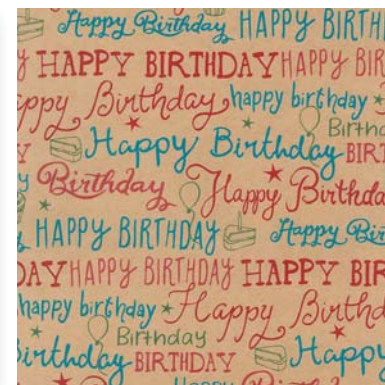 Happy Birthday HAPPY BIRTH
y HAPPY BIRTHDAY HAPPY BIR
ppy Birthday happy birthday
Birthd
Y Happy Birthday BIRT
y Birthday Happy Birthda
HAPPY BIRTHDAY Happy Bir
DAY HAPPY BIRTHDAY HAPPY BIR
happy birthday Happy Birthd
Birthday
Birthday BIRTHDAY Happy